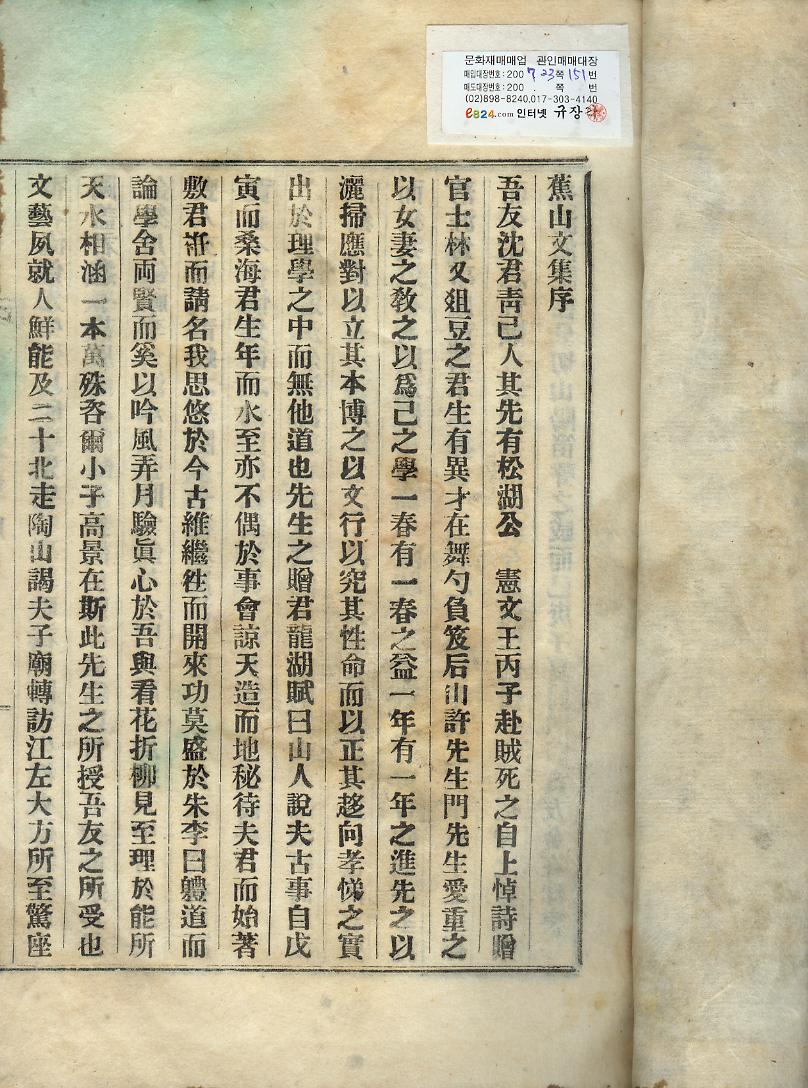 문화재매매업 관인매매대장
매입대장번호 : 200 7 23쪽 151번
매도대장번호 : 200 . 쪽 번
(02)898-8240,017-303-4140
e824.com 인터넷 규장각
蕉山文集序
吾友沈君靑己人其先有松湖公 憲文王丙子赴賊死之自上悼詩贈
官士林又俎豆之君生有異才在舞勺負笈后山許先生門先生愛重之
以女妻之敎之以爲己之學一春有一春之益一年有一年之進先之以
灑掃應對以立其本博之以文行以究其性命而以正其趍向孝悌之實
出於理學之中而無他道也先生之贈君龍湖賦曰山人說夫古事自戊
寅而桑海君生年而水至亦不偶於事會諒天造而地秘待夫君而始著
敷君衽而請名我思悠於今古維繼徃而開來功莫盛於朱李曰軆道而
論學舍両賢而奚以吟風弄月驗眞心於吾與看花折柳見至理於能所
天水相涵一本萬殊咨爾小子高景在斯此先生之所授吾友之所受也
文藝夙就人鮮能及二十北走陶山謁夫子廟轉訪江左大方所至驚座